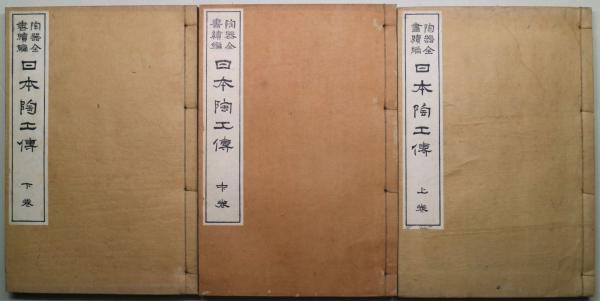 陶器全
書續編
日本陶工傳
上卷
陶器全
書續編
日本陶工傳
中卷
陶器全
書續編
日本陶工傳
下卷